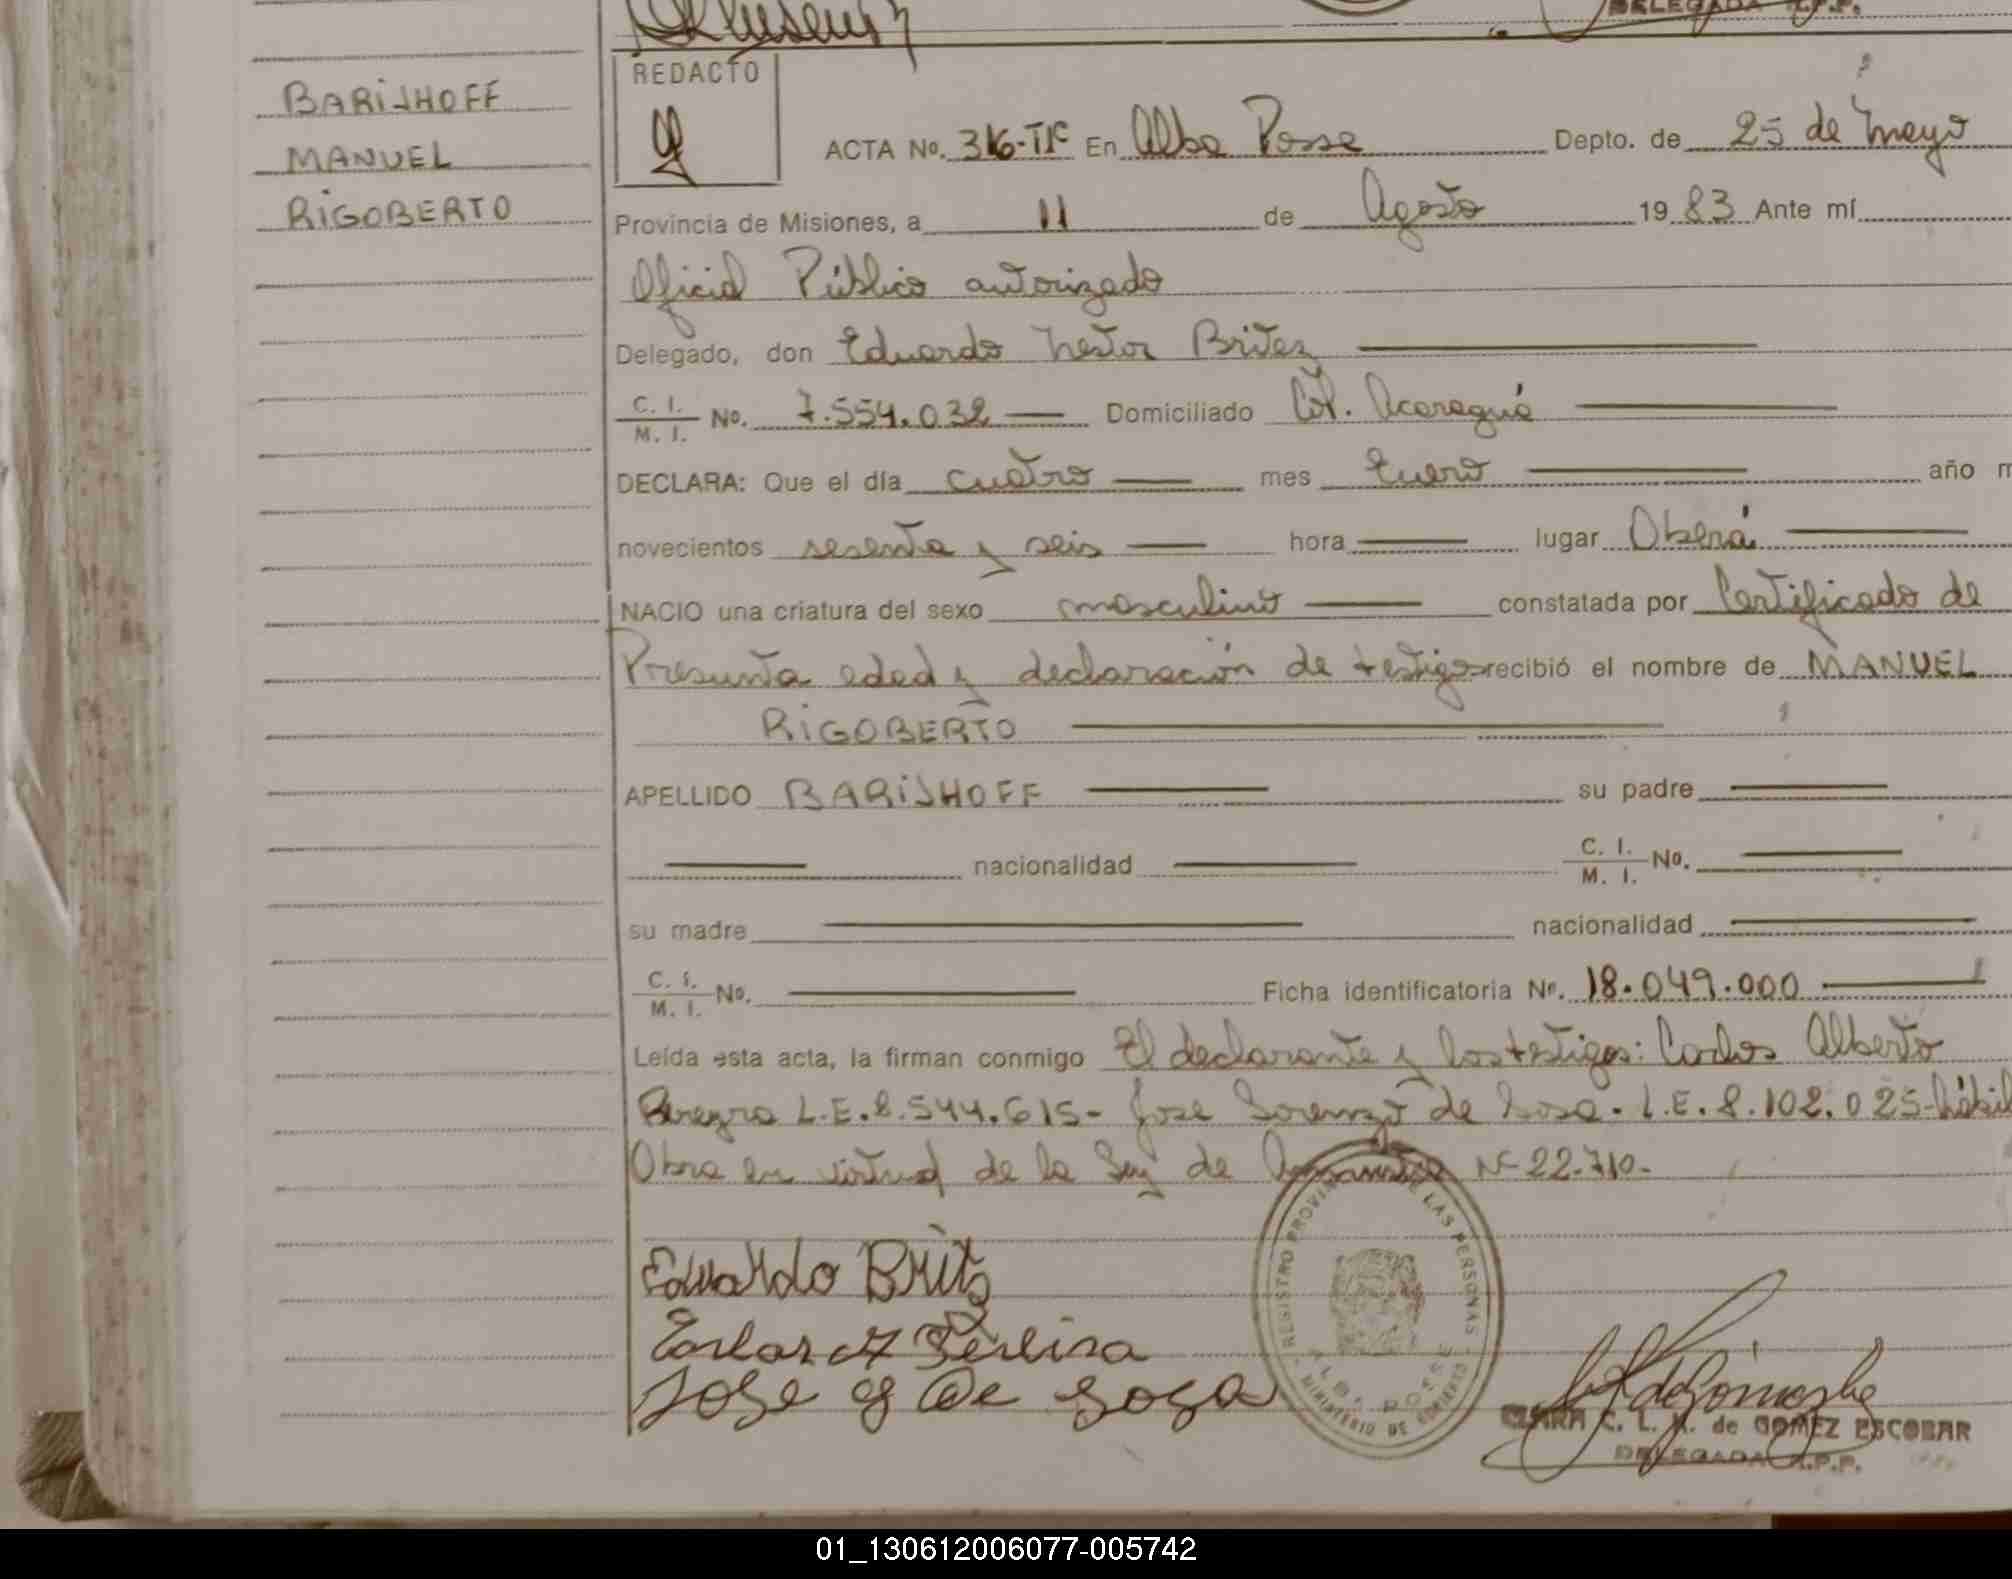 DELEGADA R.P.P.
REDACTO
BARIJHOFF
MANUEL
RIGOBERTO
ACTA No. 316-TIº En Alba Posse Depto. de 25 de Mayo
Provincia de Misiones, a 11 de Agosto 1983 Ante mí
Oficial Público autorizado
Delegado, don Eduardo Nestor Britez
C. I. M. I. No. 7.554.032 Domiciliado Col. Acaraguá
DECLARA: Que el día cuatro mes Enero año m
novecientos sesenta y seis hora lugar Oberá
NACIO una criatura del sexo masculino constatada por Certificado de
Presunta edad y declaración de testigos recibió el nombre de MANUEL
RIGOBERTO
APELLIDO BARIJHOFF su padre
nacionalidad C. I. M. I. No.
su madre nacionalidad
C. I. M. I. No. Ficha identificatoria No. 18.049.000
Leída esta acta, la firman conmigo El declarante y los testigos: Carlos Alberto
L.E. 8.544.615- Jose Lorenzo de Sosa. L.E. 8.102.025- hábil
Obra en virtud de la Ley de Amnistia Nº 22.710-
REGISTRO PROVINCIAL DE LAS PERSONAS
ALBA POSSE
MINISTERIO DE GOBIERNO
Eduardo Britz
Carlos A Pereira
Jose L de Sosa
CLARA C. L. M. de GOMEZ ESCOBAR
DELEGADA R.P.P.
01_130612006077-005742